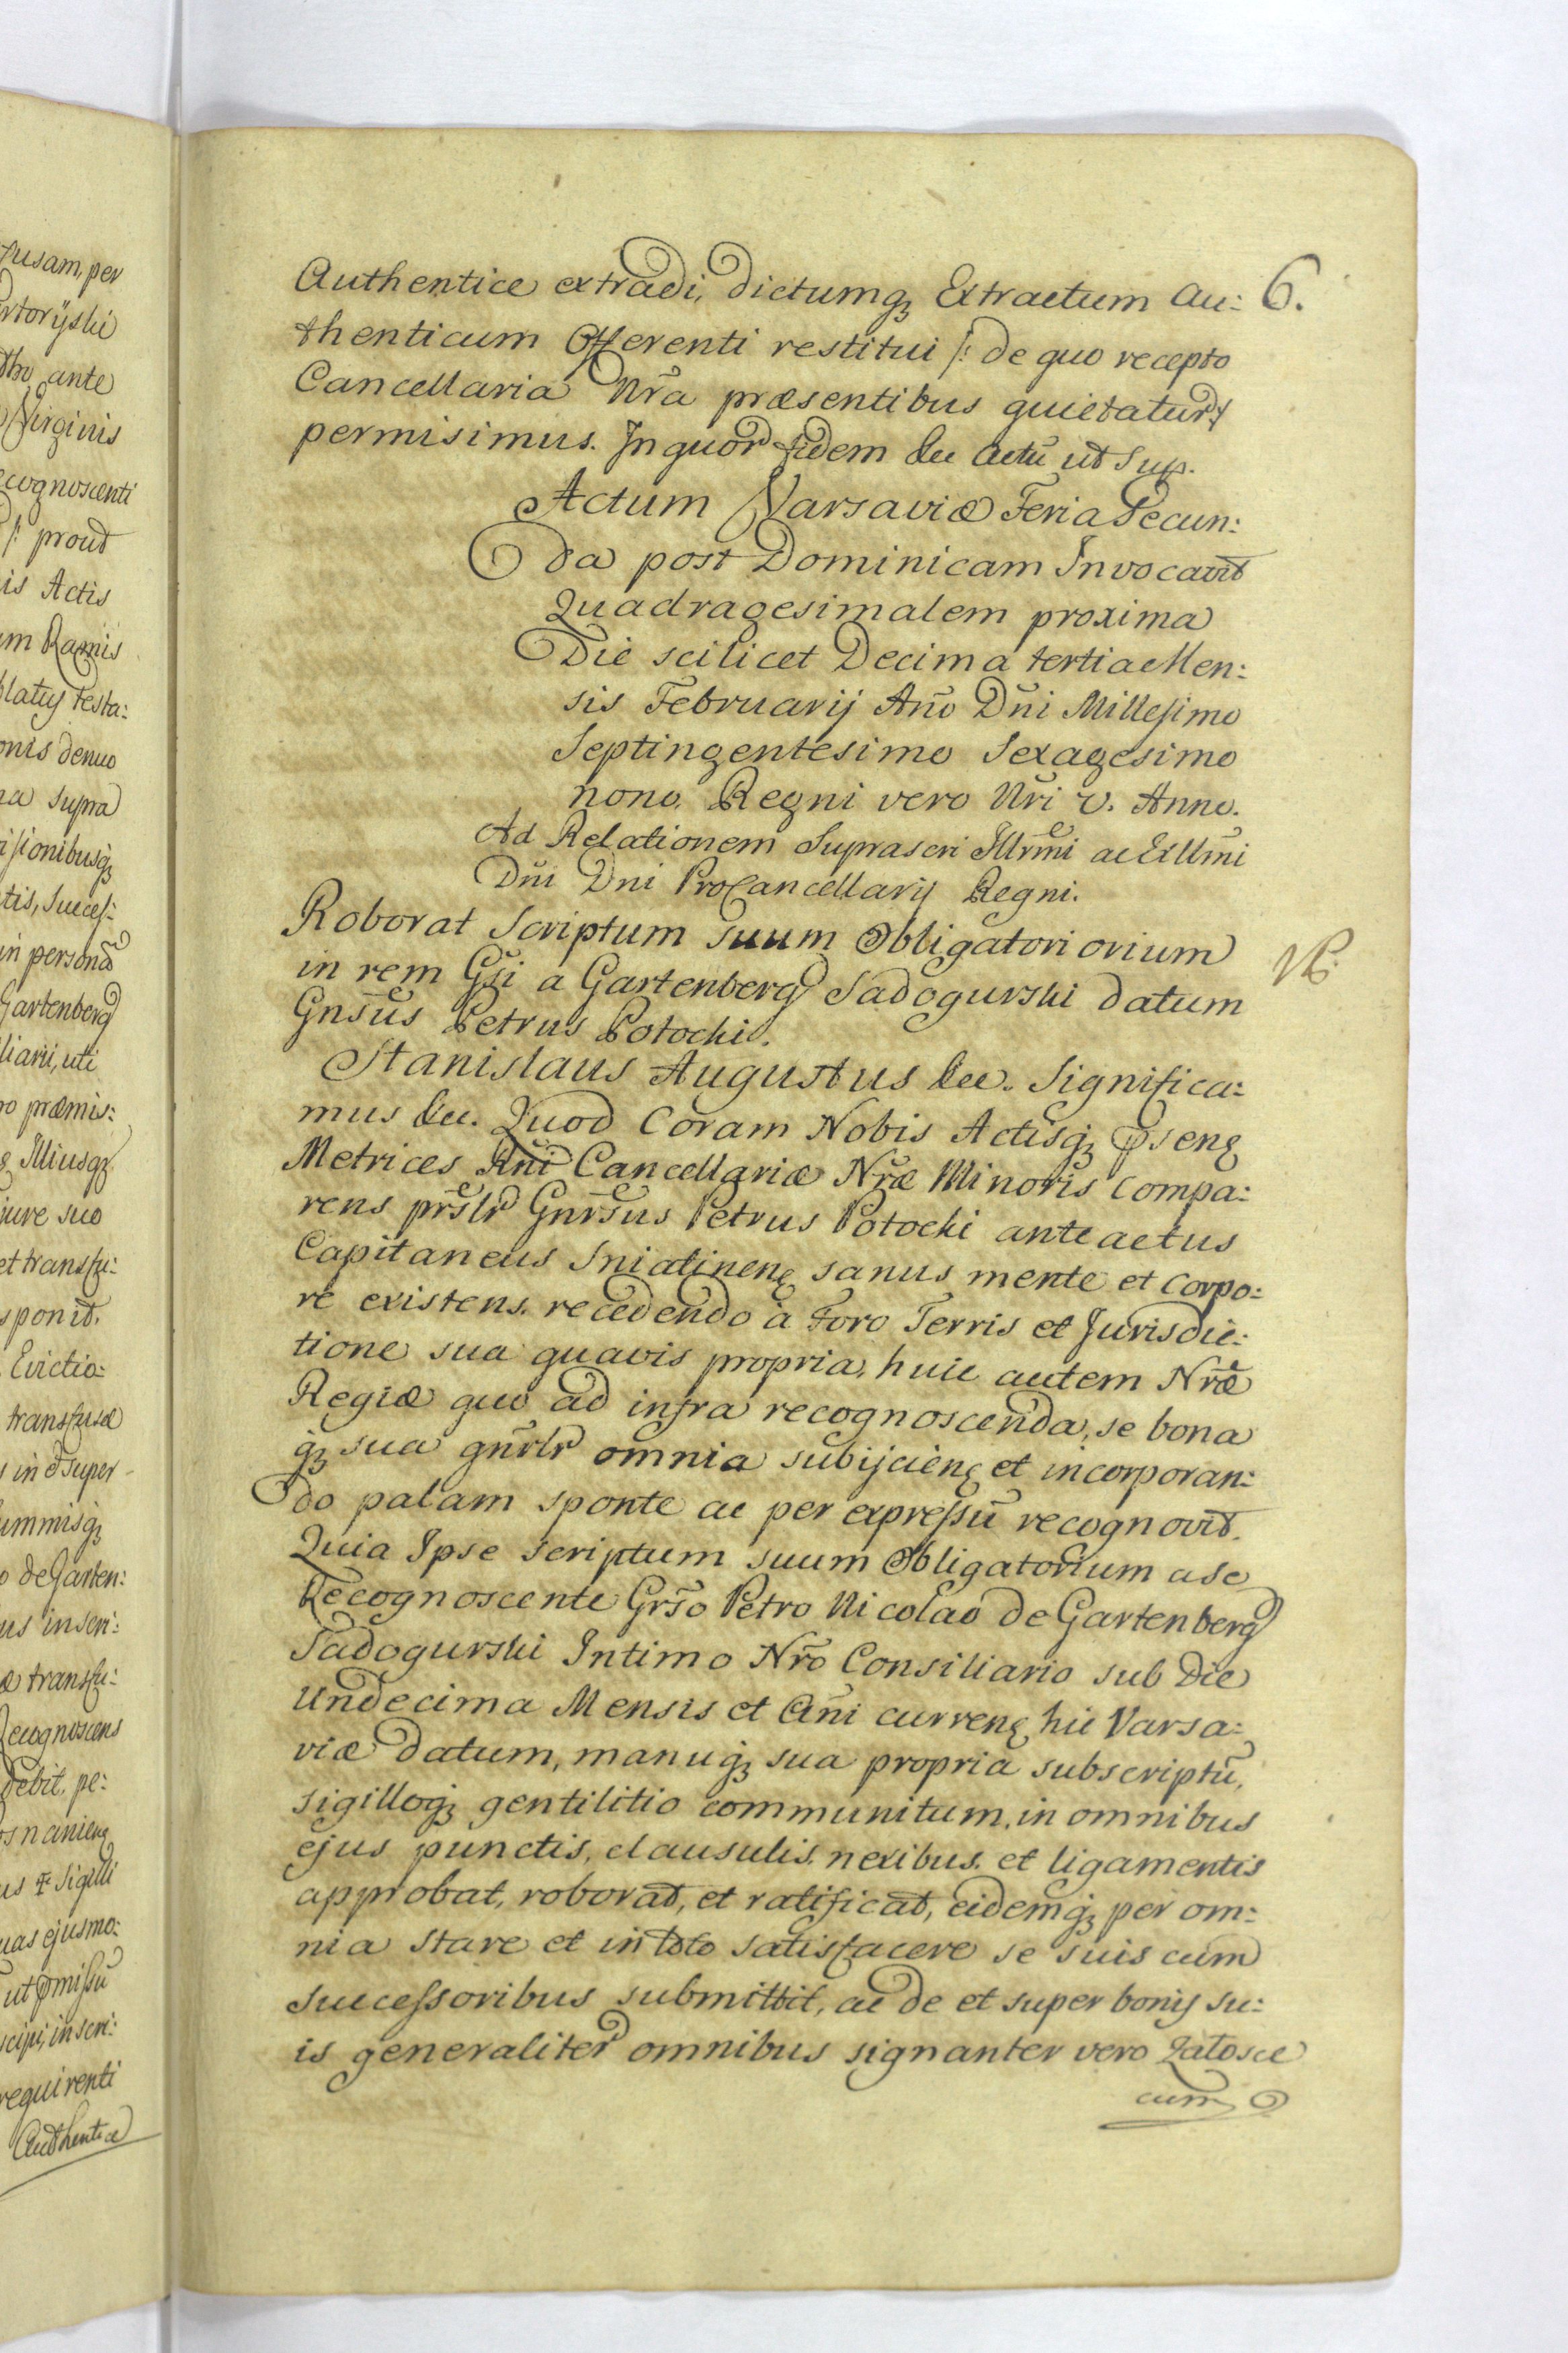 fusam, per
rtoryski
ante
Virginis
ecognoscenti
/: prout
is Actis
m Ramis
latus testa:
onis denuo
na supra
isionibusq3
tis, Succes:
in persona
Gartenberg
liarii, uti
ro præmis:
Illiusq3
jure suo
et transfu:
sponit.
Evictio:
transfusæ
s in et super
ummisq3
o de Garten:
us inseri:
æ transfu:
Recognoscens
debit, pe:
osnanien
us et Sigilli
uas ejusmo:
ut pmissũ
scipi, inscri:
requirenti
Authentice
6.
Authentice extradi, dictumq3 Extractum Au:
thenticum Offerenti restitui /: de quo recepto
Cancellaria Nr̃a præsentibus quietatur :/
permisimus. In quor fidem &c Actũ ut Sup.
Actum Varsaviæ Feria Secun:
da post Dominicam Invocavit
Quadragesimalem proxima
Die scilicet Decima tertia Men:
sis Februarij Año Dñi Millesimo
Septingentesimo Sexagesimo
nono. Regni vero Nr̃i v. Anno.
Ad Relationem Suprascri Illr̃mi ac Exllm̃i
Dñi Dni ProCancellarij Regni.
Roborat Scriptum suum Obligatoriorium
NB.
in rem Gsi a Gartenberg Sadogurski datum
Gnsũs Petrus Potocki.
Stanislaus Augustus &c. Significa:
mus &c. Quod Coram Nobis Actisq3 pseñ
Metrices Rñi Cancellariæ Nr̃æ Minoris compa:
rens pr̃slr Gnr̃sus Petrus Potocki anteactus
Capitaneus Sniatineñ sanus mente et corpo:
re existens. recedendo à Foro Terris et Jurisdic:
tione sua quavis propria, huic autem Nr̃æ
Regiæ quo ad infra recognoscenda, se bona
q3 sua gñrlr omnia subijcieñ et incorporan:
do palam sponte ac per expressũ recognovit.
Quia Ipse scriptum suum Obligatorium a se
Recognoscente Grs̃o Petro Nicolao de Gartenberg
Sadogurski Intimo Nr̃o Consiliario sub Die
Undecima Mensis et Añi curreñ hic Varsa:
viæ datum, manuq3 sua propria subscriptũ,
sigilloq3 gentilitio communitum, in omnibus
ejus punctis, clausulis, nexibus. et ligamentis
approbat, roborat, et ratificat, eidemq3 per om:
nia stare et in toto satisfacere se suis cum
successoribus submittit, ac de et super bonis su:
is generaliter omnibus signanter vero Zalosce
cum